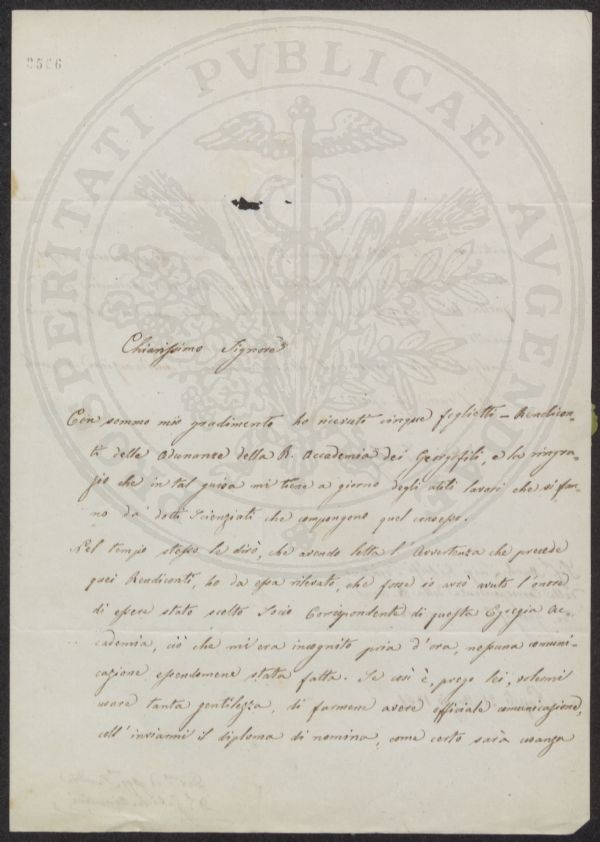 0506
PROSPERITATI PVBLICAE AVGENDAE
Chiarissimo Signore
Con sommo mio gradimento ho ricevuto cinque foglietti = Rendicon-
ti delle Adunanze della R. Accademia dei Georgofili, e la ringra-
zio che in tal guisa mi tiene a giorno degli utili lavori che si fan-
no da' dotti Scienziati che compongono quel consesso.
Nel tempo stesso le dirò, che avendo letta l'Avvertenza che precede
quei Rendiconti, ho da essa rilevato, che forse io avrò avuto l'onore
di essere stato scelto Socio Corrispondente di questa Egregia Ac-
cademia, ciò che mi era incognito pria d'ora, nessuna comuni-
cazione essendomene stata fatta. Se così è, prego lei, volermi
usare tanta gentilezza, di farmene avere officiale comunicazione,
coll'inviarmi il diploma di nomina, come certo sarà usanza